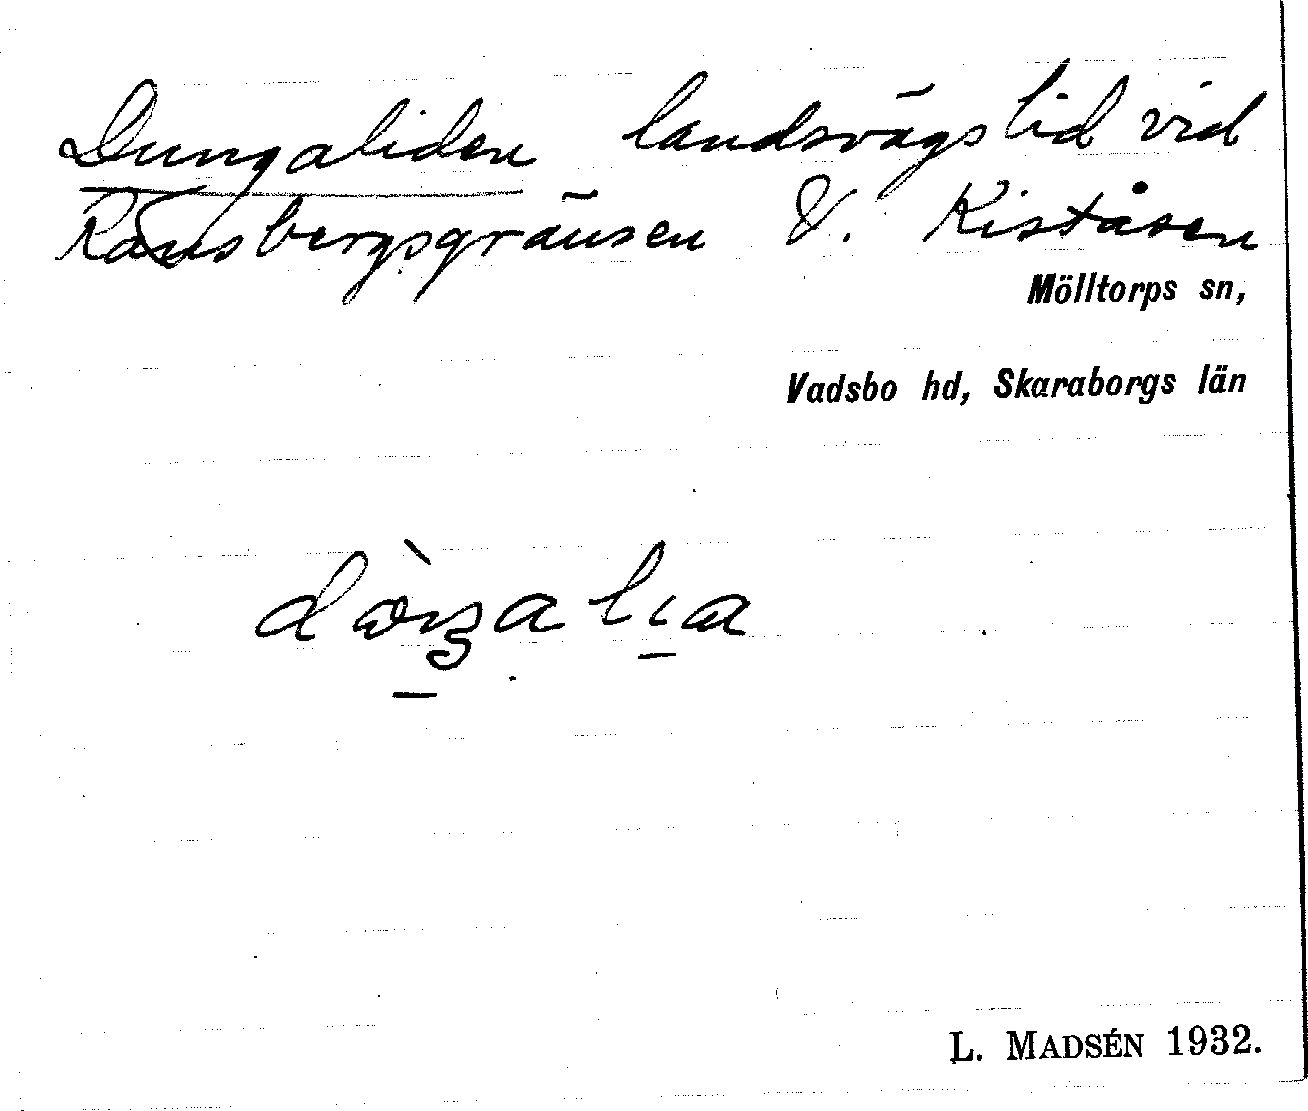 Dungaliden landsvägslid vid
Ransbergsgränsen V. Kiståsen
Mölltorps sn,
Vadsbo hd, Skaraborgs län
L. MADSÉN 1932.